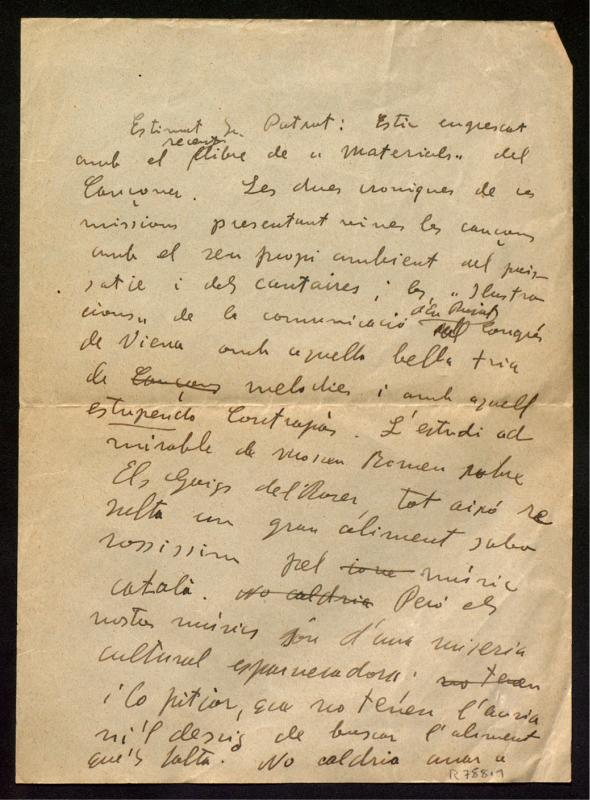 Estimat Sr. Patrat: Estic engrescat
recent
amb el llibre de „ materials„ del
Cançoner. Les dues croniques de
missions presentant vives les cançons
amb el seu propi ambient del pais
satje i dels cantaires; les „ Ilustra
cions„ de la comunicació Congrés
d'En Pujol
de Viena amb aquella bella tria
de Cançons melodies i amb aquell
estupendo Contrapàs. L'estudi ad
mirable de Mossen Romeu sobre
Els Goigs del Roser tot aixó re
sulta un gran áliment sabo
rossissim pel jove músic
català. No caldria Peró els
nostres músics són d'una miseria
cultural esparveradora; no tenen
i lo pitjor, que no tenen l'ansia
ni'l desitg de buscar l'aliment
que'ls falta. No caldria anar a
R 7881